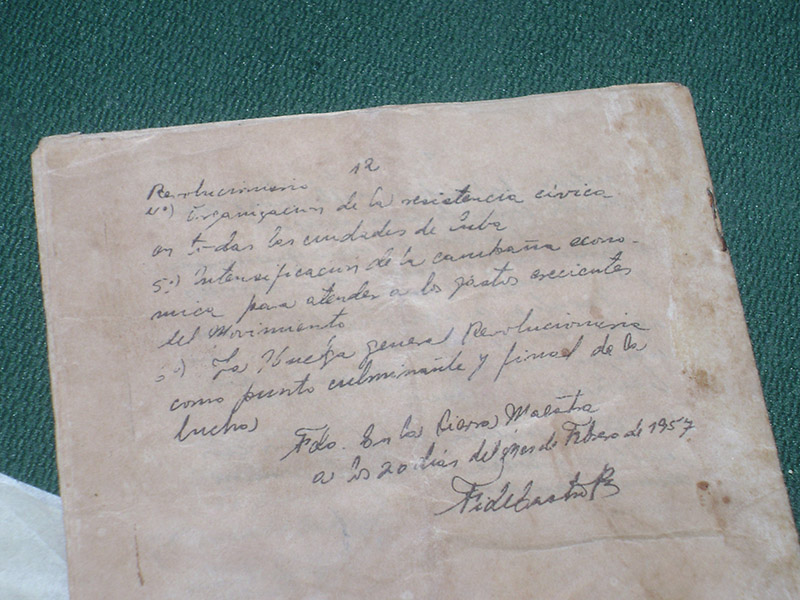 12
Revolucionario
4º) Organizacion de la resistencia cívica
en todas las ciudades de Cuba
5º) Intensificacion de la campaña econo-
mica para atender a los gastos crecientes
del Movimiento
6º) La Huelga general Revolucionaria
como punto culminante y final de la
lucha
Fdo. En la Sierra Maestra
a los 20 días del mes de Febrero de 1957
Fidel Castro R